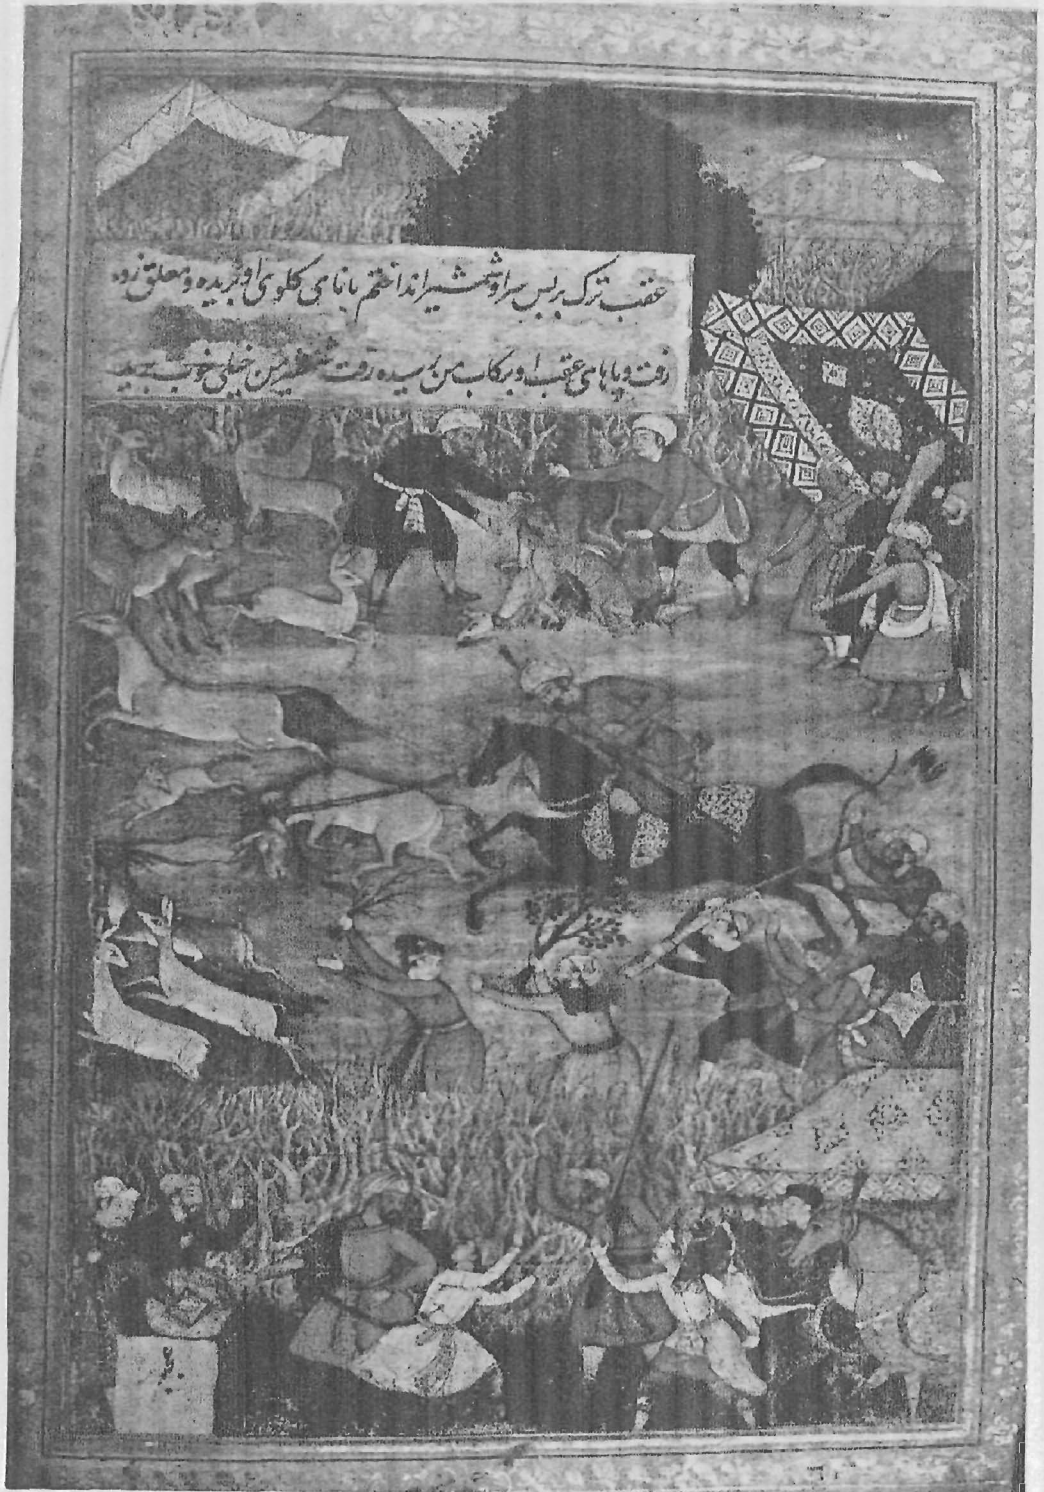 عقب ترک بر پس سر او شمشیر انداختم تا نای گلوی او بریده و معلق زده
رفت و پاهای عقب او برکاب من رسیده رفت شمشیر من خیلی خوب برید